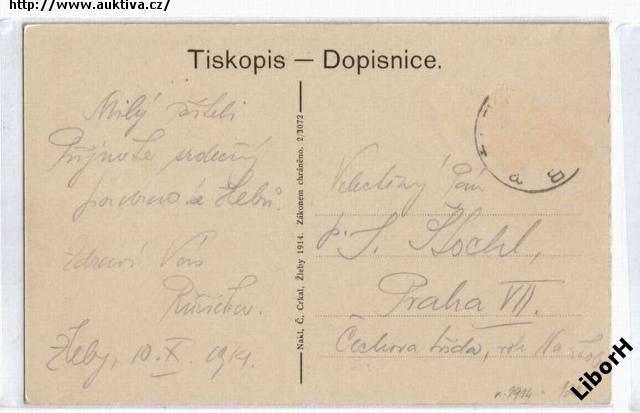 http://www.auktiva.cz/
Tiskopis — Dopisnice.
Milý příteli
Přijměte srdečný
pozdrav z Žleb.
Zdraví Vás
Růžička.
Žleby, 10. X. 1914.
Nakl. Č. Crkal, Žleby 1914. Zákonem chráněno. 2/3072
Velectěný Pán
p. J.
Praha VII.
Čechova třída, roh Na
r. 1914
LiborH